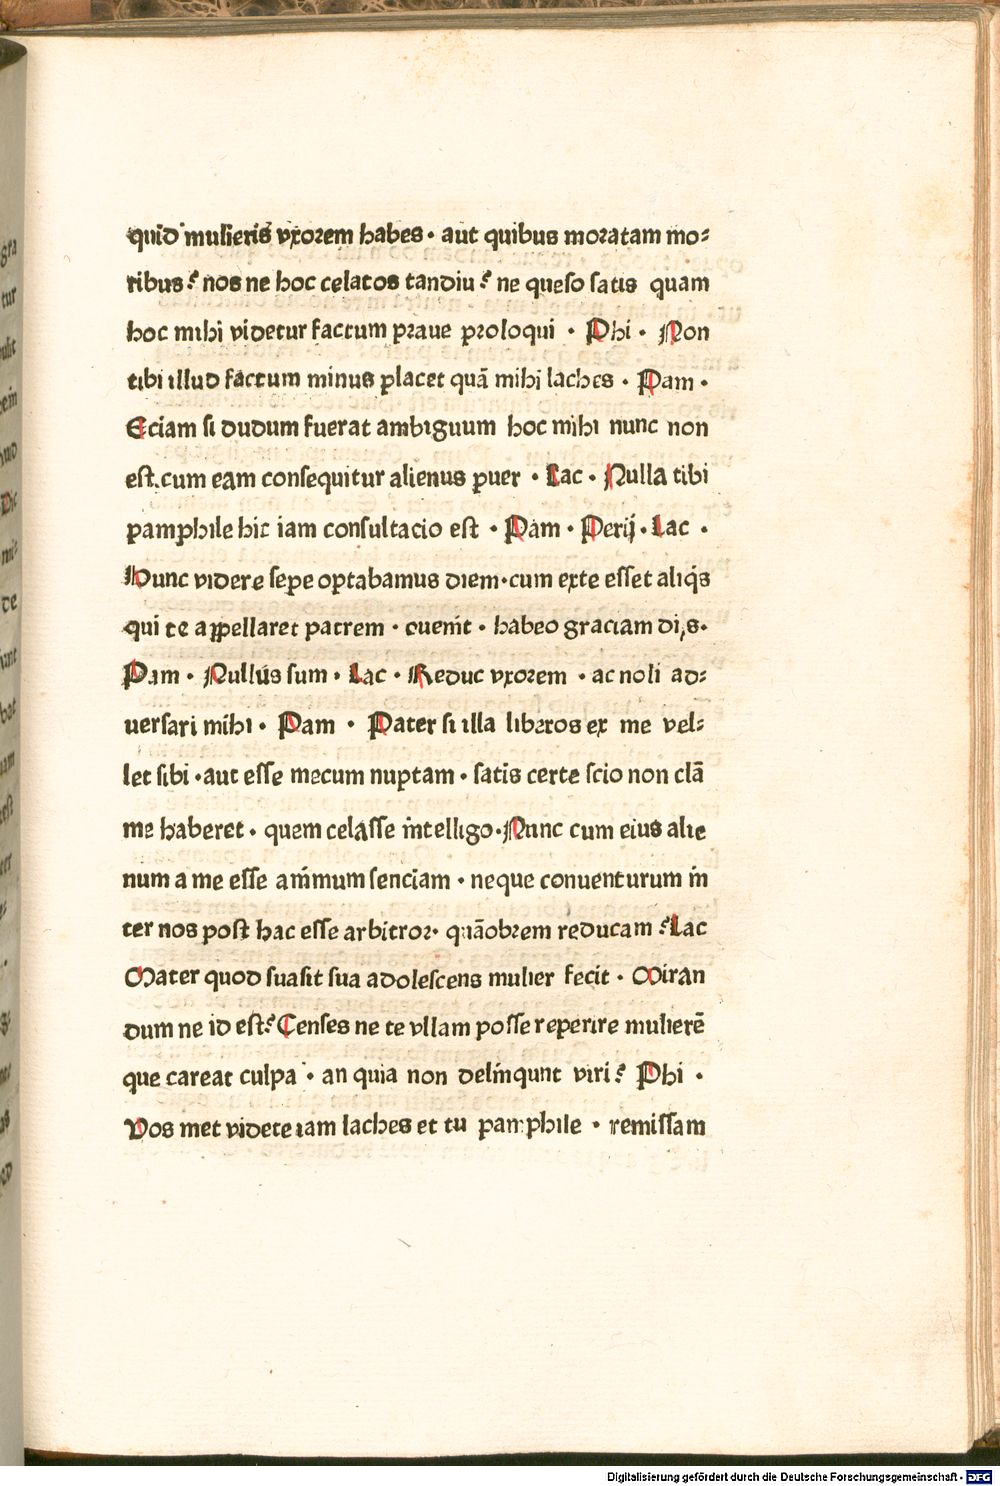 quid mulieris vxorem habes · aut quibus moratam mo⸗
ribus? nos ne hoc celatos tandiu? ne queso satis quam
hoc mihi videtur factum praue proloqui · Phi · Non
tibi illud factum minus placet quā mihi laches · Pam ·
Eciam si dudum fuerat ambiguum hoc mihi nunc non
est.cum eam consequitur alienus puer · Lac · Nulla tibi
pamphile hic iam consultacio est · Pam · Perij · Lac ·
Nunc videre sepe optabamus diem·cum exte esset aliqs
qui te appellaret patrem · euenit · habeo graciam dijs·
Pam · Nullus sum · Lac · Reduc vxorem · ac noli ad⸗
uersari mihi · Pam · Pater si illa liberos ex me vel⸗
let sibi · aut esse mecum nuptam · satis certe scio non clā
me haberet · quem celasse intelligo·Nunc cum eius alie
num a me esse animum senciam · neque conuenturum in
ter nos post hac esse arbitror· quāobrem reducam? Lac
Mater quod suasit sua adolescens mulier fecit · Miran
dum ne id est? Censes ne te vllam posse reperire mulierē
que careat culpa · an quia non delinqunt viri? Phi ·
Vos met videte iam laches et tu pamphile · remissam
Digitalisierung gefördert durch die Deutsche Forschungsgemeinschaft - DFG